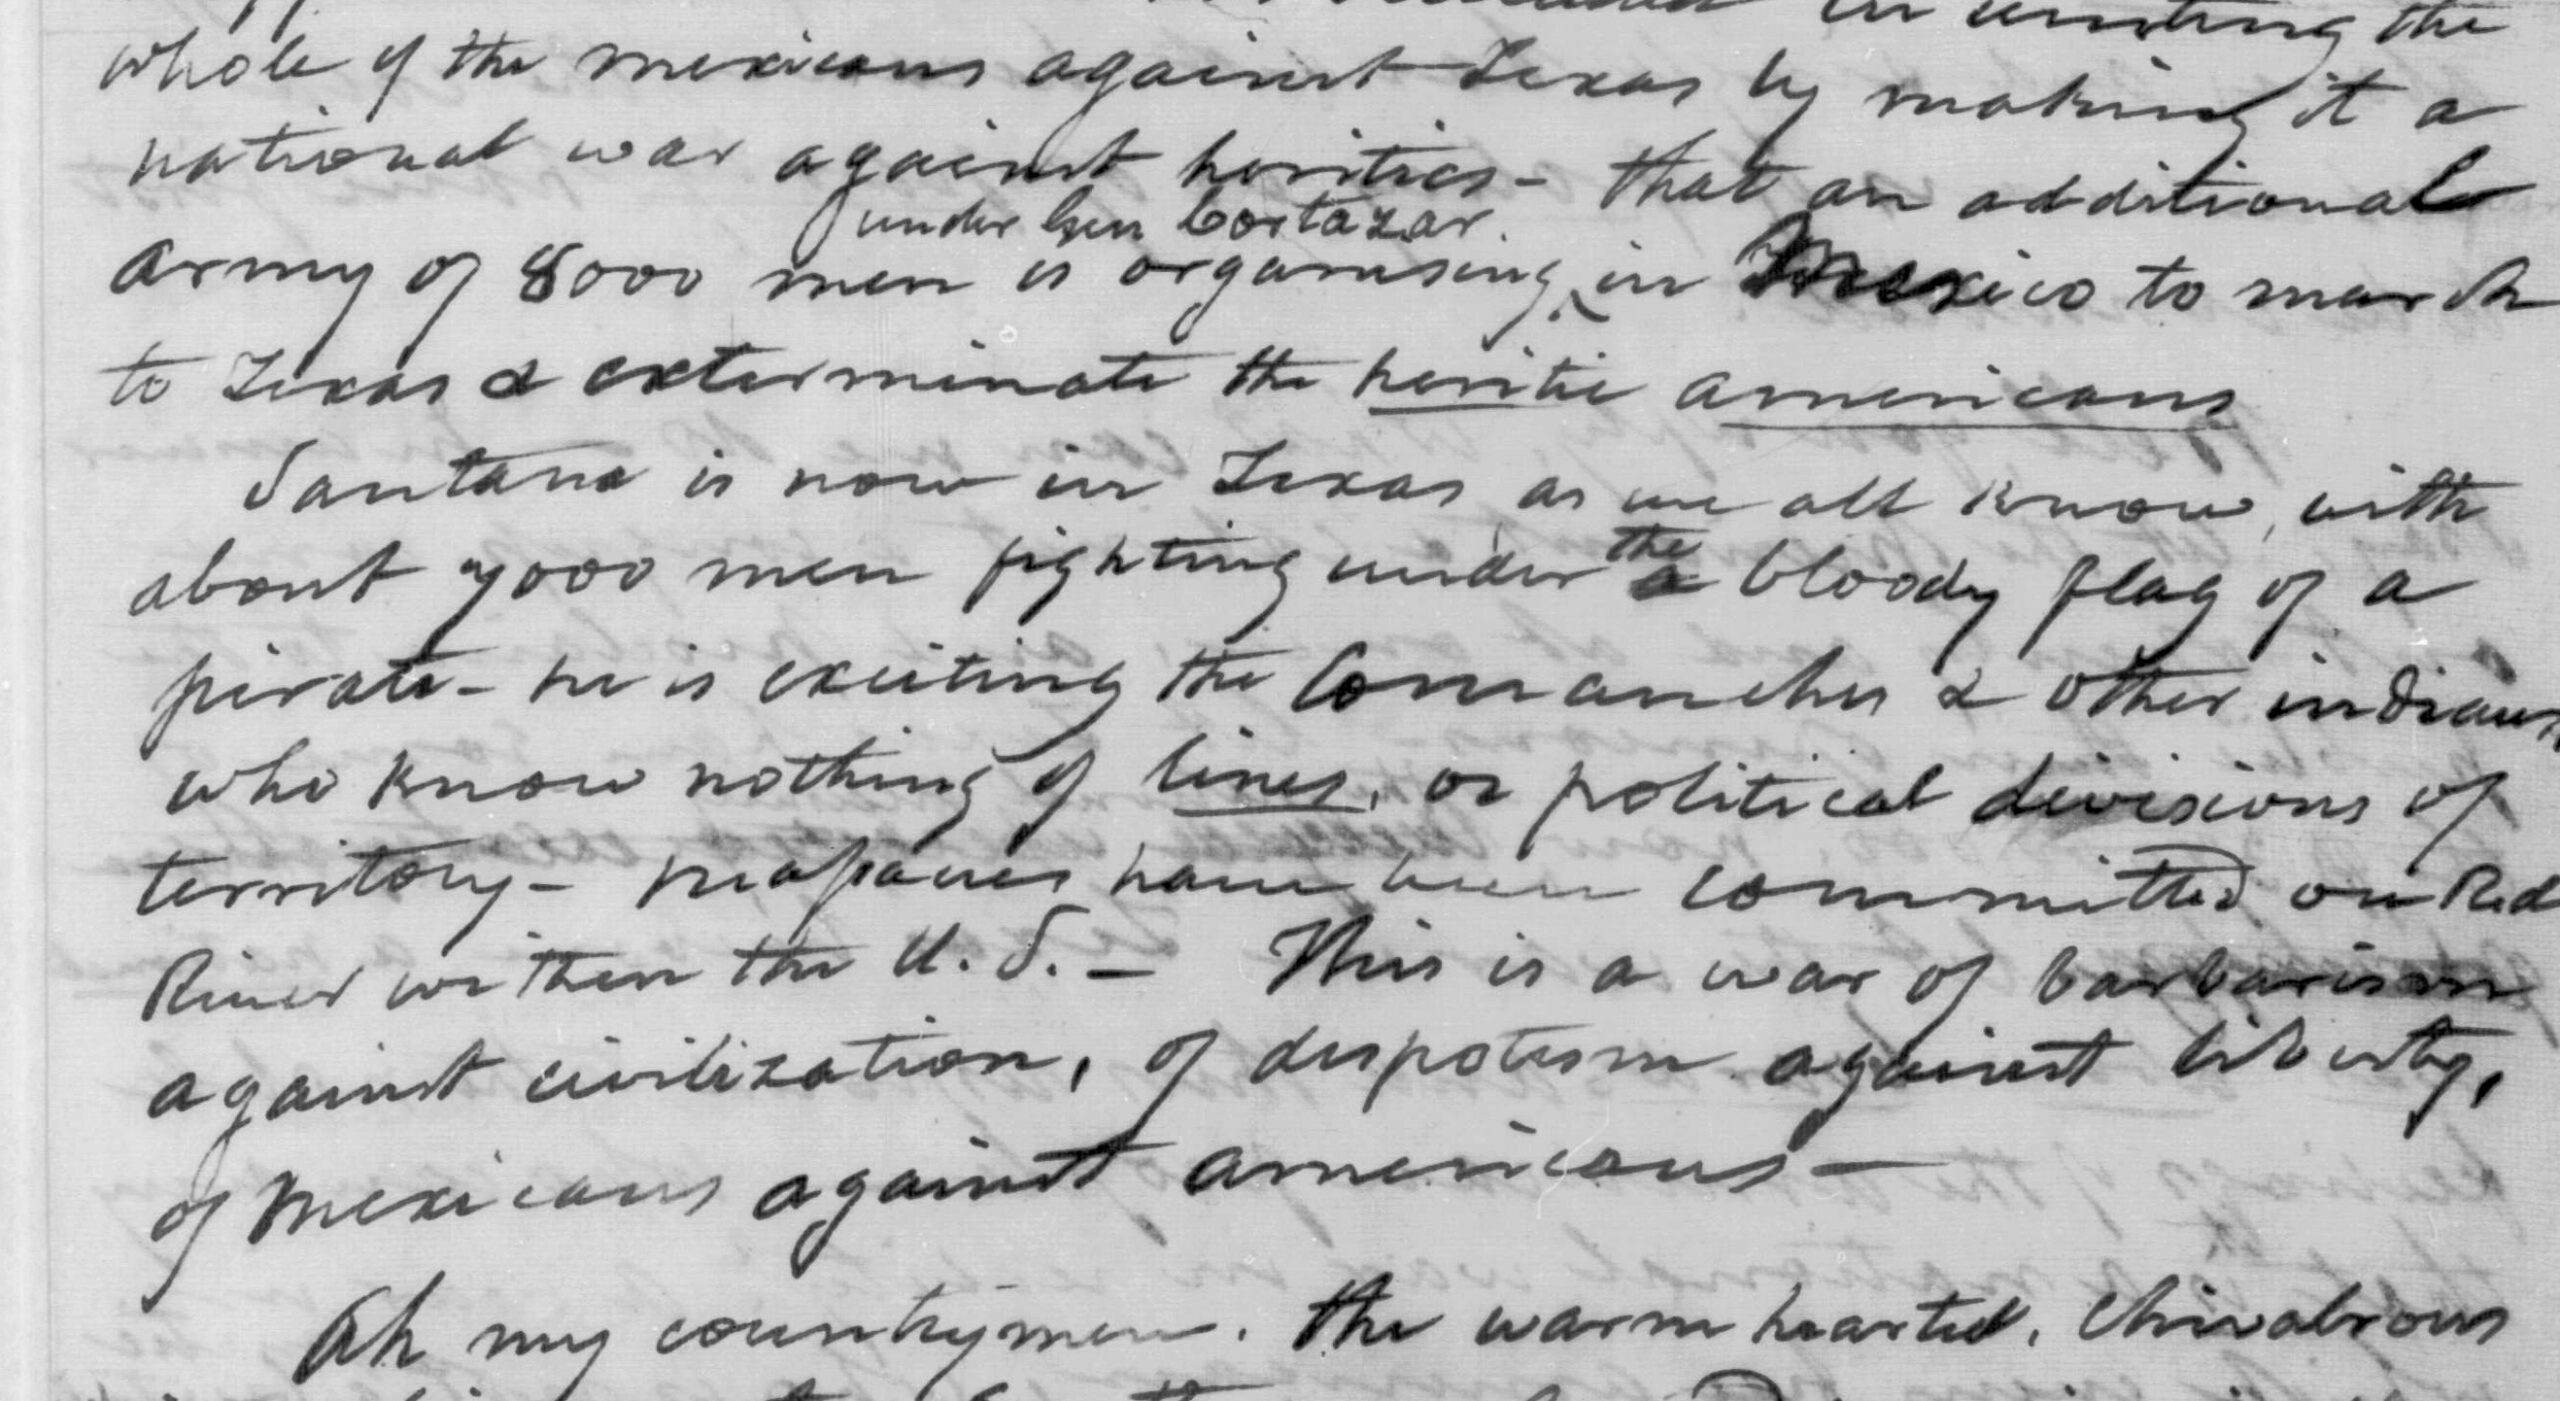 in uniting the
whole of the mexicans against Texas by making it a
national war against heritics - that an additional
under Gen Cortazar.
army of 8000 men is organising in Mexico to march
to Texas & exterminate the heritic americans
Santana is now in Texas as we all know, with
about 7000 men fighting under the bloody flag of a
pirate - he is exciting the Comanches & other indians,
who know nothing of lines, or political divisions of
territory - have been committed on Red
River within the U. S. - This is a war of barbarism
against civilization, of despotism against liberty,
of Mexicans against americans -
Oh my countrymen. the warm hearted, chivalrous